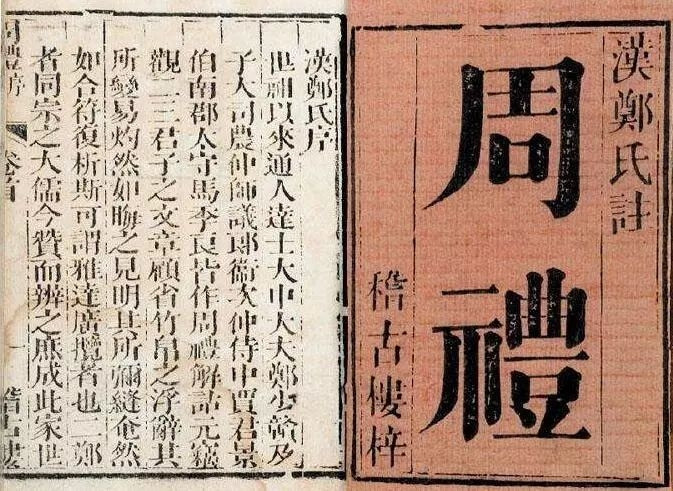 漢鄭氏註
周禮
稽古樓梓
漢鄭氏序
世祖以來通人達士大中大夫鄭少贛及
子大司農仲師議郎衛次仲侍中賈君景
伯南郡太守馬季良皆作周禮解詁元竊
觀二三君子之文章顧省竹帛之浮辭其
所變易灼然如晦之見明其所彌縫奄然
如合符復析斯可謂雅達廣攬者也二鄭
者同宗之大儒今贊而辨之庶成此家世
周禮序 卷首 一 稽古樓